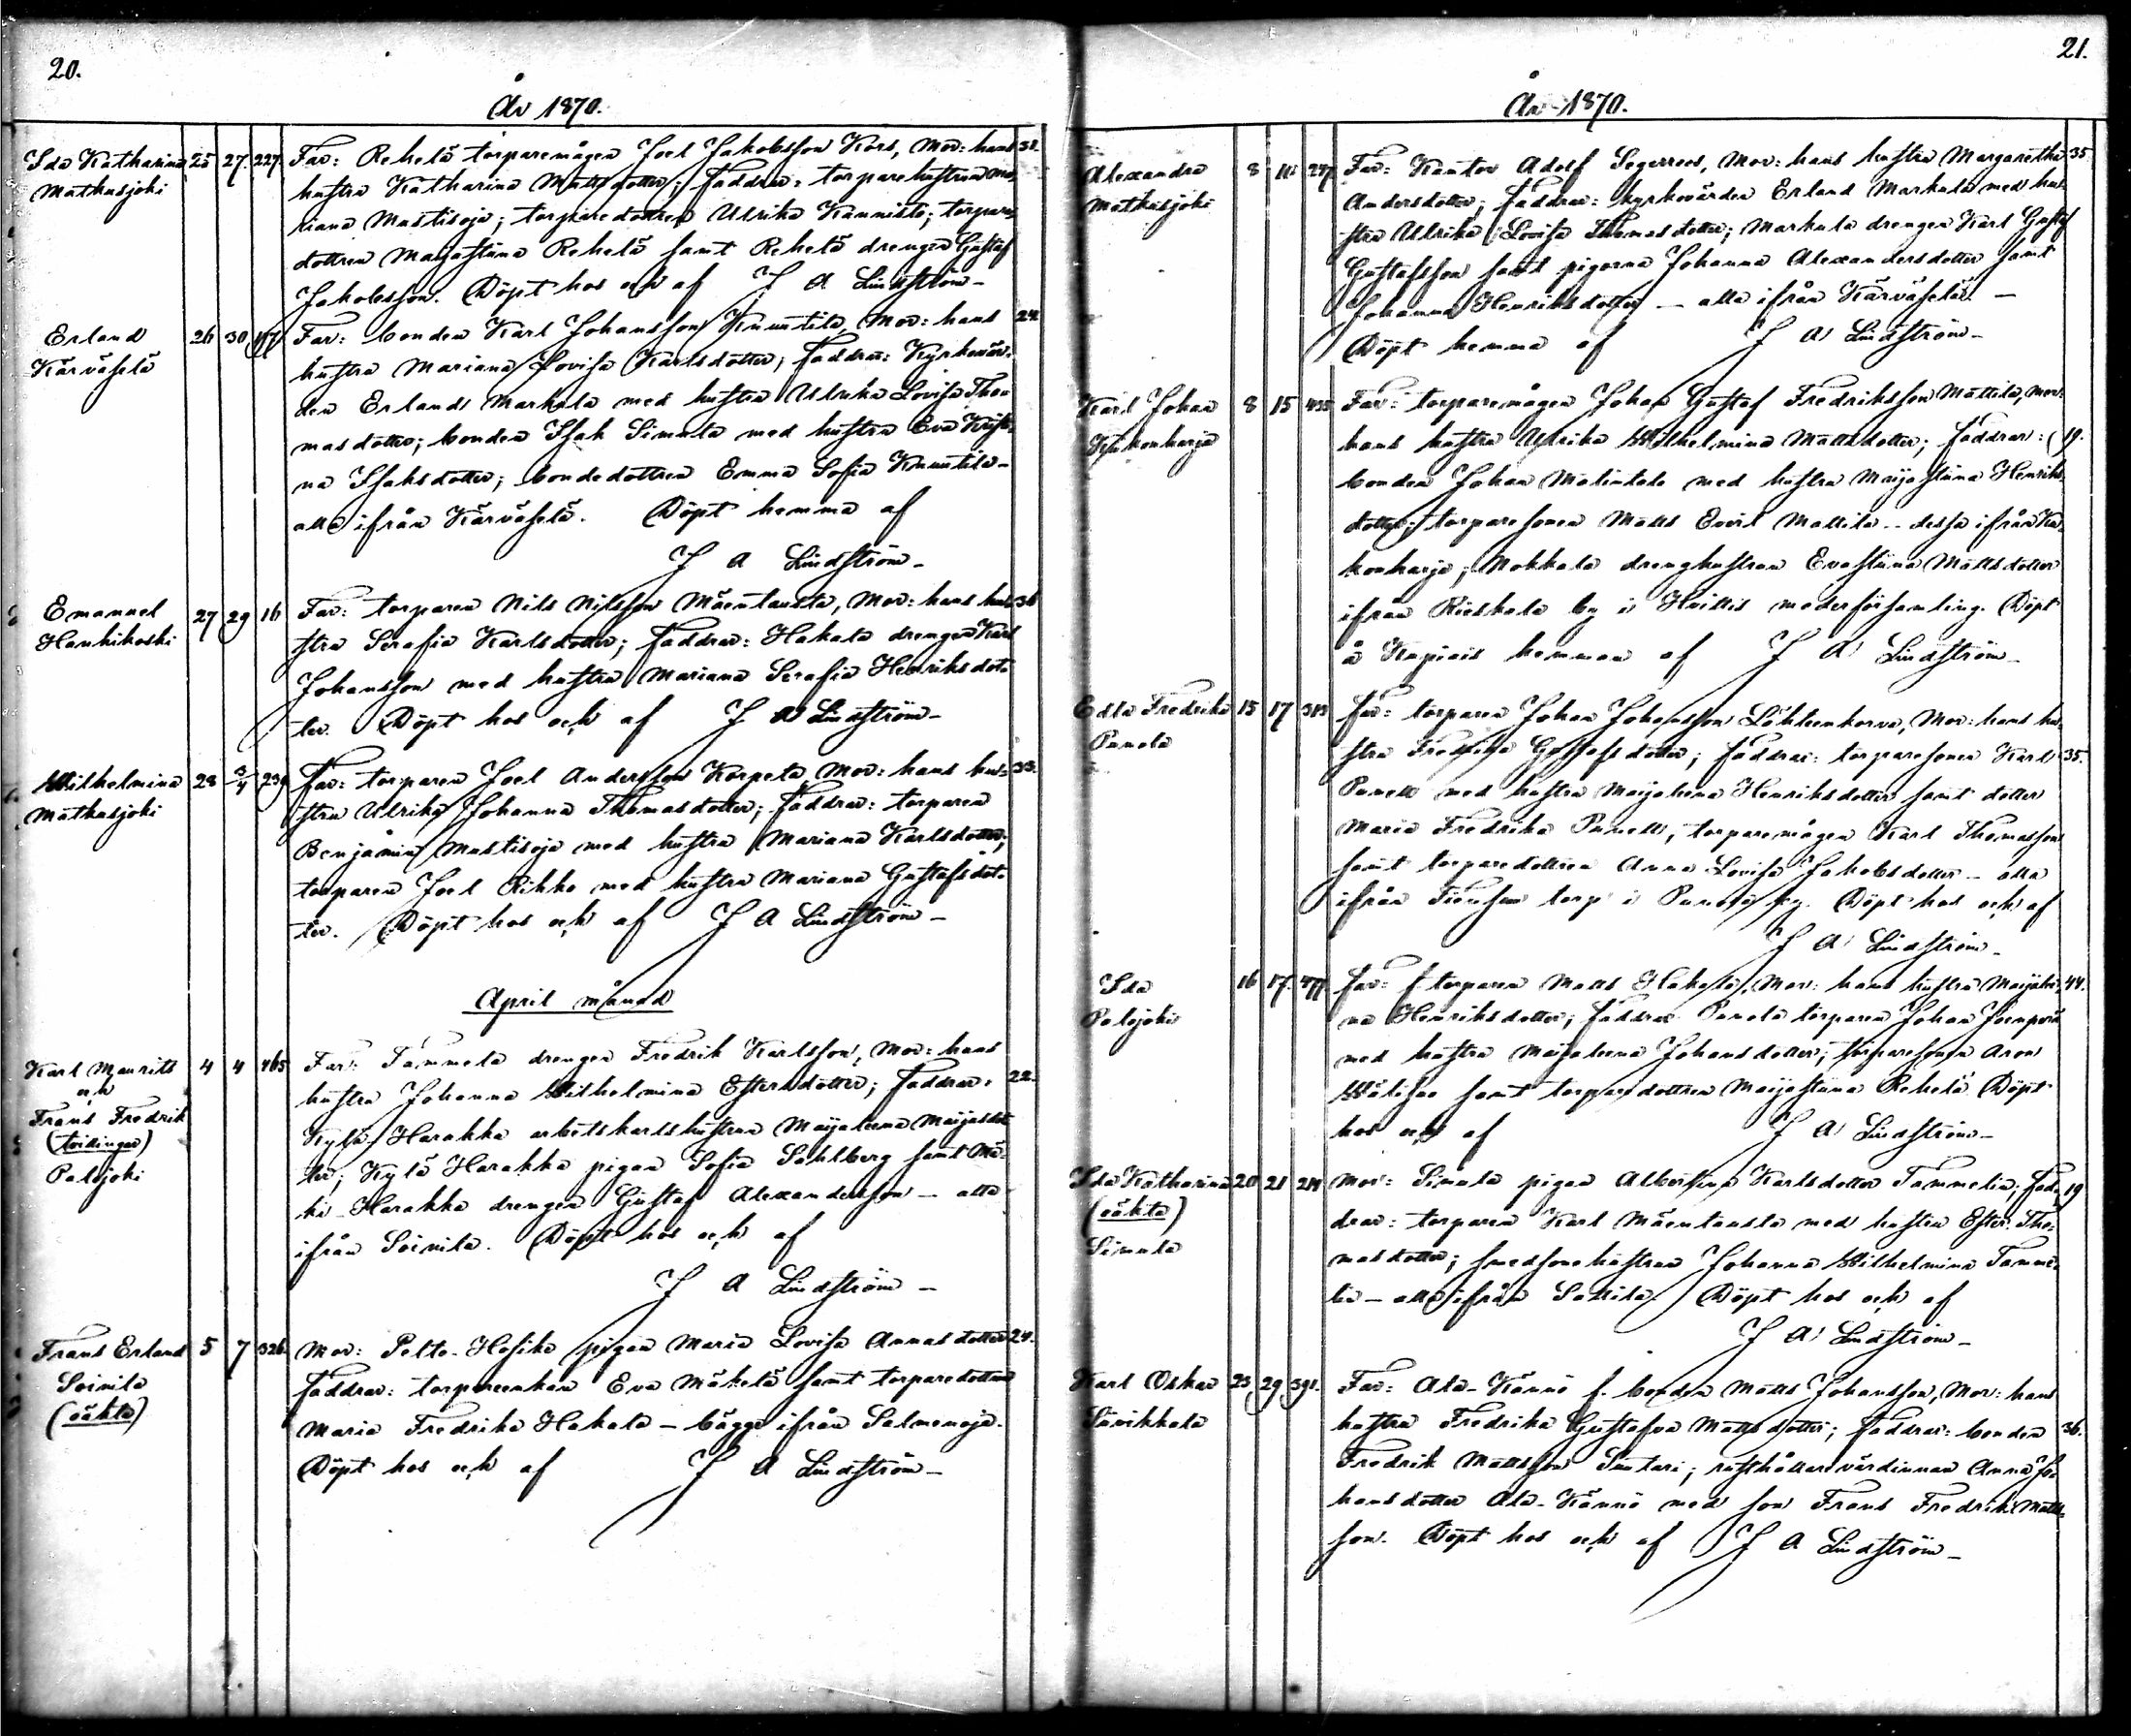 20.
År 1870.
Ida Katharina 25 27. 227. Far: Rehelä torparemågen Joel Jakobsson Kors, Mor: hans 31.
Matkusjoki hustru Katharina Mattsdotter; Faddrar: torparehustrun Ma-
riana Mustisoja; torparedottren Ulrika Kannisto; torpare-
dottren Majastiina Rehelä samt Rehelä drengen Gustaf
Jakobsson. Döpt hos och af J A Lindström-
Erland 26 30 Far: bonden Karl Johansson Knuutila, Mor: hans 24.
Kärväselä hustru Mariana Lovisa Karlsdotter; Faddrar: Kyrkovär-
den Erland Markula med hustru Ulrika Lovisa Tho-
masdotter; bonden Isak Simula med hustru Eva Kristi-
na Isaksdotter; bondedottren Emma Sofia Knuutila-
alla ifrån Kärväselä. Döpt hemma af
J A Lindström-
Emanuel 27 29 16 Far: torparen Nils Nilsson Mäentausta, Mor: hans hu- 36
Hanhikoski stru Serafia Karlsdotter; Faddrar: Hakala drengen Karl
Johansson med hustru Mariana Serafia Henriksdot-
ter. Döpt hos och af J A Lindström-
Wilhelmina 28 3/4 239 Far: torparen Joel Andersson Korpela, Mor: hans hu- 33.
Matkusjoki stru Ulrika Johanna Thomasdotter; Faddrar: torparen
Benjamin Mustisoja med hustru Mariana Karlsdotter;
torparen Joel Rikko med hustru Mariana Gustafsdot-
ter. Döpt hos och af J A Lindström-
April månad
Karl Maurits 4 4 465 Far: Tammela drengen Fredrik Karlsson, Mor: hans
och hustru Johanna Wilhelmina Estersdotter; Faddrar: 22.
Frans Fredrik Kylä-Harakka arbetskarlshustrun Maijaleena Maijasdot-
(tvillingar) ter; Kylä Harakka pigan Sofia Sahlberg samt Mä-
Palojoki ki-Harakka drengen Gustaf Alexandersson - alla
ifrån Soinila. Döpt hos och af
J A Lindström-
Frans Erland 5 7 326. Mor: Pelto-Hosike pigan Maria Lovisa Annasdotter 24.
Soinila Faddrar: torpareenkan Eva Mäkelä samt torparedottren
(oäkta) Maria Fredrika Hakala - bägge ifrån Salmenoja.
Döpt hos och af J A Lindström-
21.
År 1870.
Alexandra 8 10 247 Far: Kantor Adolf Segerroos, Mor: hans hustru Margaretha 35
Matkusjoki Andersdotter; Faddrar: kyrkovärden Erland Markula med hu-
stru Ulrika Lovisa Thomasdotter; Markula drengen Karl Gustaf
Gustafsson samt pigorna Johanna Alexandersdotter samt
Johanna Henriksdotter - alla ifrån Kärväselä. -
Döpt hemma af J A Lindström-
Karl Johan 8 15 Far: torparemågen Johan Gustaf Fredriksson Mattila, Mor:
Kukonharja hans hustru Ulrika Wilhelmina Mattsdotter; Faddrar: 19.
bonden Johan Malintalo med hustru Maijastiina Henriks-
dotter; torparesonen Matts Evert Mattila - dessa ifrån Ku-
konharja; Mokkala drenghustrun Evastiina Mattsdotter
ifrån Rieskala by i Huittis moderförsamling. Döpt
å Kapiais hemman af J A Lindström-
Edla Fredrika 15 17 313 Far: torparen Johan Johansson Lähteenkorva, Mor: hans hu-
Punola stru Fredrika Gustafsdotter; faddrar: torparesonen Karl 35.
Punell med hustru Maijaleena Henriksdotter samt dotter
Maria Fredrika Punell, torparemågen Karl Thomasson
samt torparedottren Anna Lovisa Jakobsdotter - alla
ifrån torp i Punola by. Döpt hos och af
J A Lindström-
Ida 16 17. Far: f. torparen Matts Hakala, Mor: hans hustru Maijastii- 44.
Palojoki na Henriksdotter; faddrar: Punola torparen Johan
med hustru Maijaleena Johansdotter; torparesonen Aron
Wälisuo samt torparedottren Maijastiina Rehelä. Döpt
hos och af J A Lindström-
Ida Katharina 20 21 214 Mor: Simula pigan Albertina Karlsdotter Tammelin; Fad- 19
(oäkta) drar: torparen Karl Mäentausta med hustru Ester Tho-
Simula masdotter; smedsonehustrun Johanna Wilhelmina Tamme-
lin - alla ifrån Sallila. Döpt hos och af
J A Lindström-
Karl Oskar 23 29 391. Far: Ala-Kännö f. bonden Matts Johansson, Mor: hans
Suvikkala hustru Fredrika Gustafva Mattsdotter; faddrar: bonden 36.
Fredrik Mattsson Suutari; rusthållarevärdinnan Anna Jo-
hansdotter Ala-Kännö med son Frans Fredrik Matts-
son. Döpt hos och af J A Lindström-